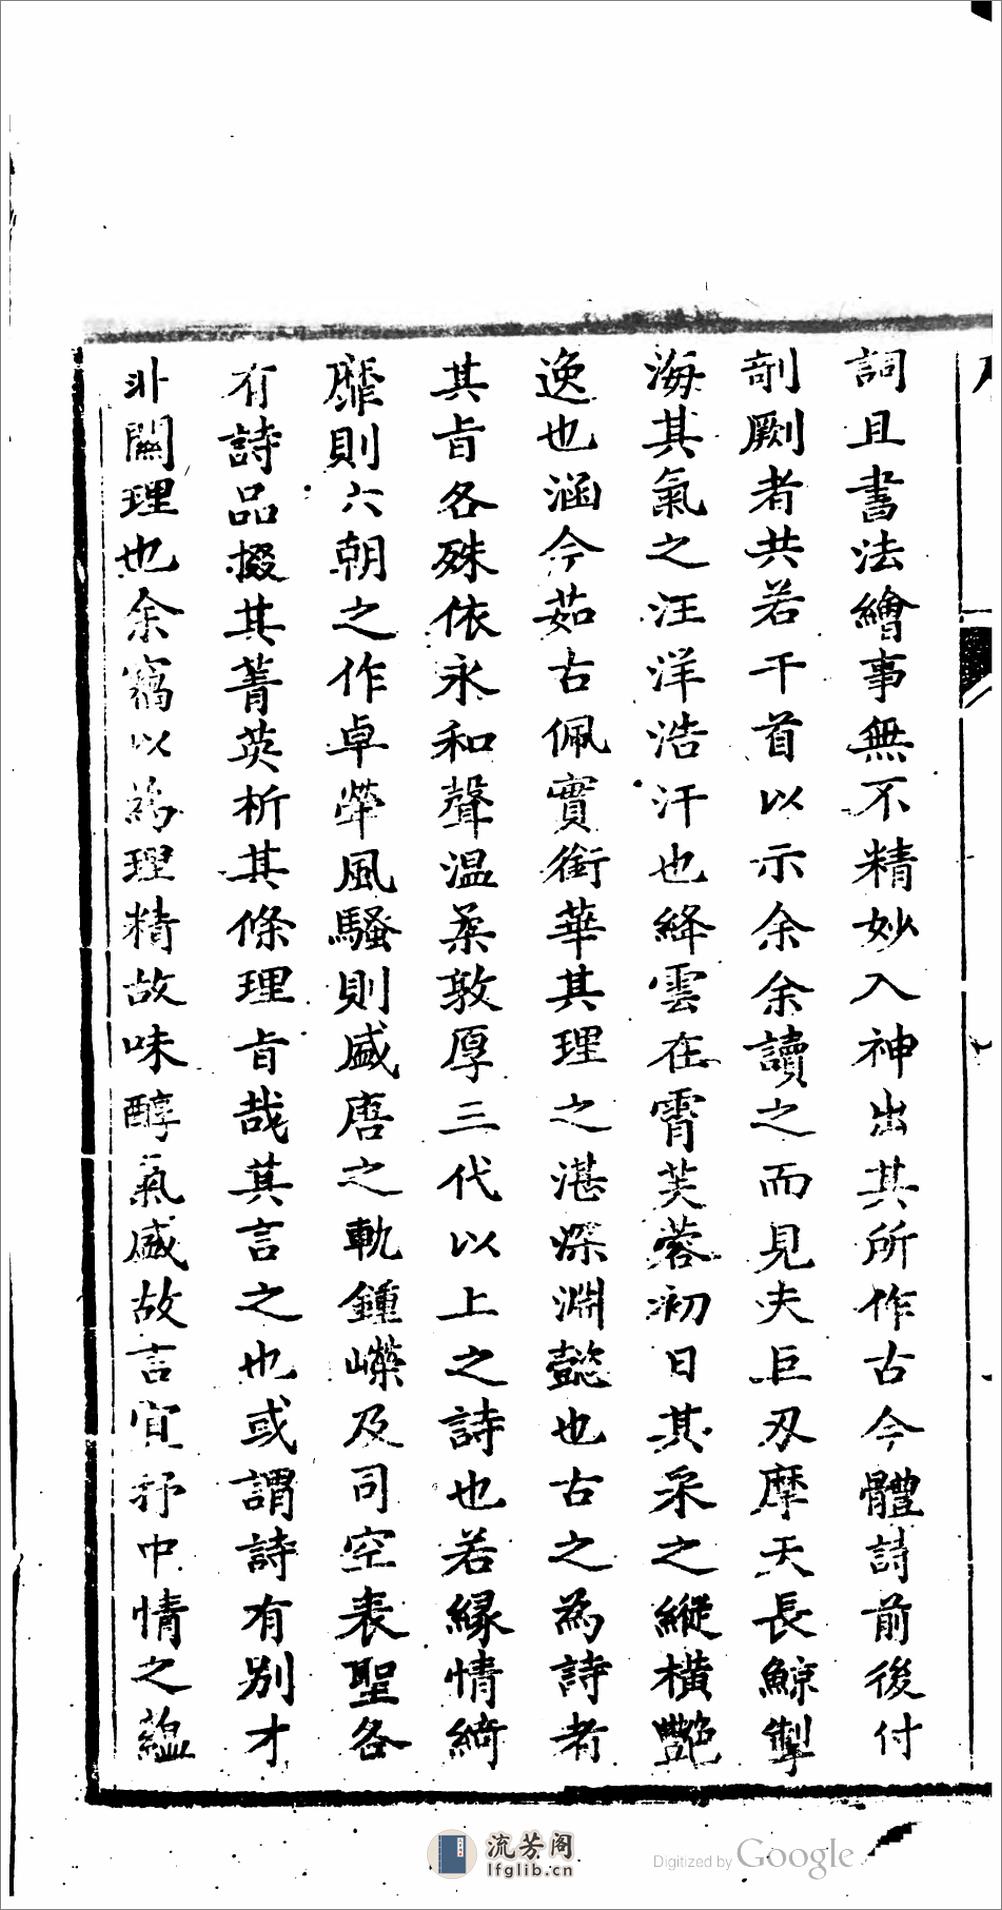 詞且書法繪事無不精妙入神出其所作古今體詩前後付
剞劂者共若干首以示余余讀之而見夫巨刃摩天長鯨掣
海其氣之汪洋浩汗也絳雲在霄芙蓉初日其采之縱橫艷
逸也涵今茹古佩實銜華其理之湛深淵懿也古之為詩者
其旨各殊依永和聲温柔敦厚三代以上之詩也若緣情綺
靡則六朝之作卓犖風騷則盛唐之軌鍾嶸及司空表聖各
有詩品掇其菁英析其條理旨哉其言之也或謂詩有別才
非關理也余竊以為理精故味醇氣盛故言宜抒中情之蘊
流芳阁
lfglib.cn
Digitized by Google